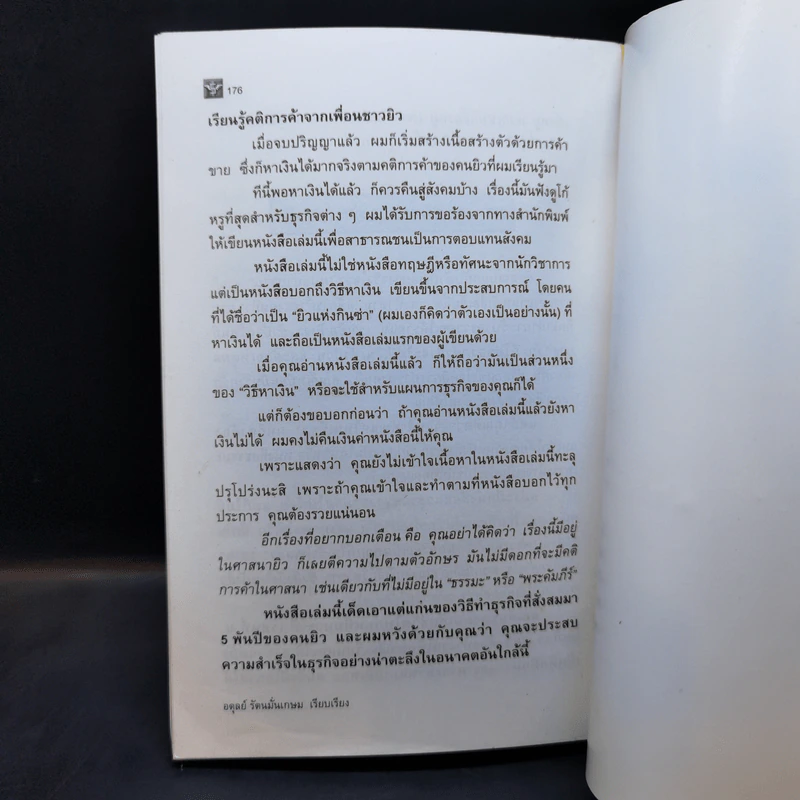 176
เรียนรู้คติการค้าจากเพื่อนชาวยิว
เมื่อจบปริญญาแล้ว ผมก็เริ่มสร้างเนื้อสร้างตัวด้วยการค้า
ขาย ซึ่งก็หาเงินได้มากจริงตามคติการค้าของคนยิวที่ผมเรียนรู้มา
ทีนี้พอหาเงินได้แล้ว ก็ควรคืนสู่สังคมบ้าง เรื่องนี้มันฟังดูโก้
หรูที่สุดสำหรับธุรกิจต่าง ๆ ผมได้รับการขอร้องจากทางสำนักพิมพ์
ให้เขียนหนังสือเล่มนี้เพื่อสาธารณชนเป็นการตอบแทนสังคม
หนังสือเล่มนี้ไม่ใช่หนังสือทฤษฎีหรือทัศนะจากนักวิชาการ
แต่เป็นหนังสือบอกถึงวิธีหาเงิน เขียนขึ้นจากประสบการณ์ โดยคน
ที่ได้ชื่อว่าเป็น “ยิวแห่งกินซ่า” (ผมเองก็คิดว่าตัวเองเป็นอย่างนั้น) ที่
หาเงินได้ และถือเป็นหนังสือเล่มแรกของผู้เขียนด้วย
เมื่อคุณอ่านหนังสือเล่มนี้แล้ว ก็ให้ถือว่ามันเป็นส่วนหนึ่ง
ของ “วิธีหาเงิน” หรือจะใช้สำหรับแผนการธุรกิจของคุณก็ได้
แต่ก็ต้องขอบอกก่อนว่า ถ้าคุณอ่านหนังสือเล่มนี้แล้วยังหา
เงินไม่ได้ ผมคงไม่คืนเงินค่าหนังสือนี้ให้คุณ
เพราะแสดงว่า คุณยังไม่เข้าใจเนื้อหาในหนังสือเล่มนี้ทะลุ
ปรุโปร่งนะสิ เพราะถ้าคุณเข้าใจและทำตามที่หนังสือบอกไว้ทุก
ประการ คุณต้องรวยแน่นอน
อีกเรื่องที่อยากบอกเตือน คือ คุณอย่าได้คิดว่า เรื่องนี้มีอยู่
ในศาสนายิว ก็เลยตีความไปตามตัวอักษร มันไม่มีดอกที่จะมีคติ
การค้าในศาสนา เช่นเดียวกับที่ไม่มีอยู่ใน “ธรรมะ” หรือ “พระคัมภีร์”
หนังสือเล่มนี้เด็ดเอาแต่แก่นของวิธีทำธุรกิจที่สั่งสมมา
5 พันปีของคนยิว และผมหวังด้วยกับคุณว่า คุณจะประสบ
ความสำเร็จในธุรกิจอย่างน่าตะลึงในอนาคตอันใกล้นี้
อดุลย์ รัตนมั่นเกษม เรียบเรียง